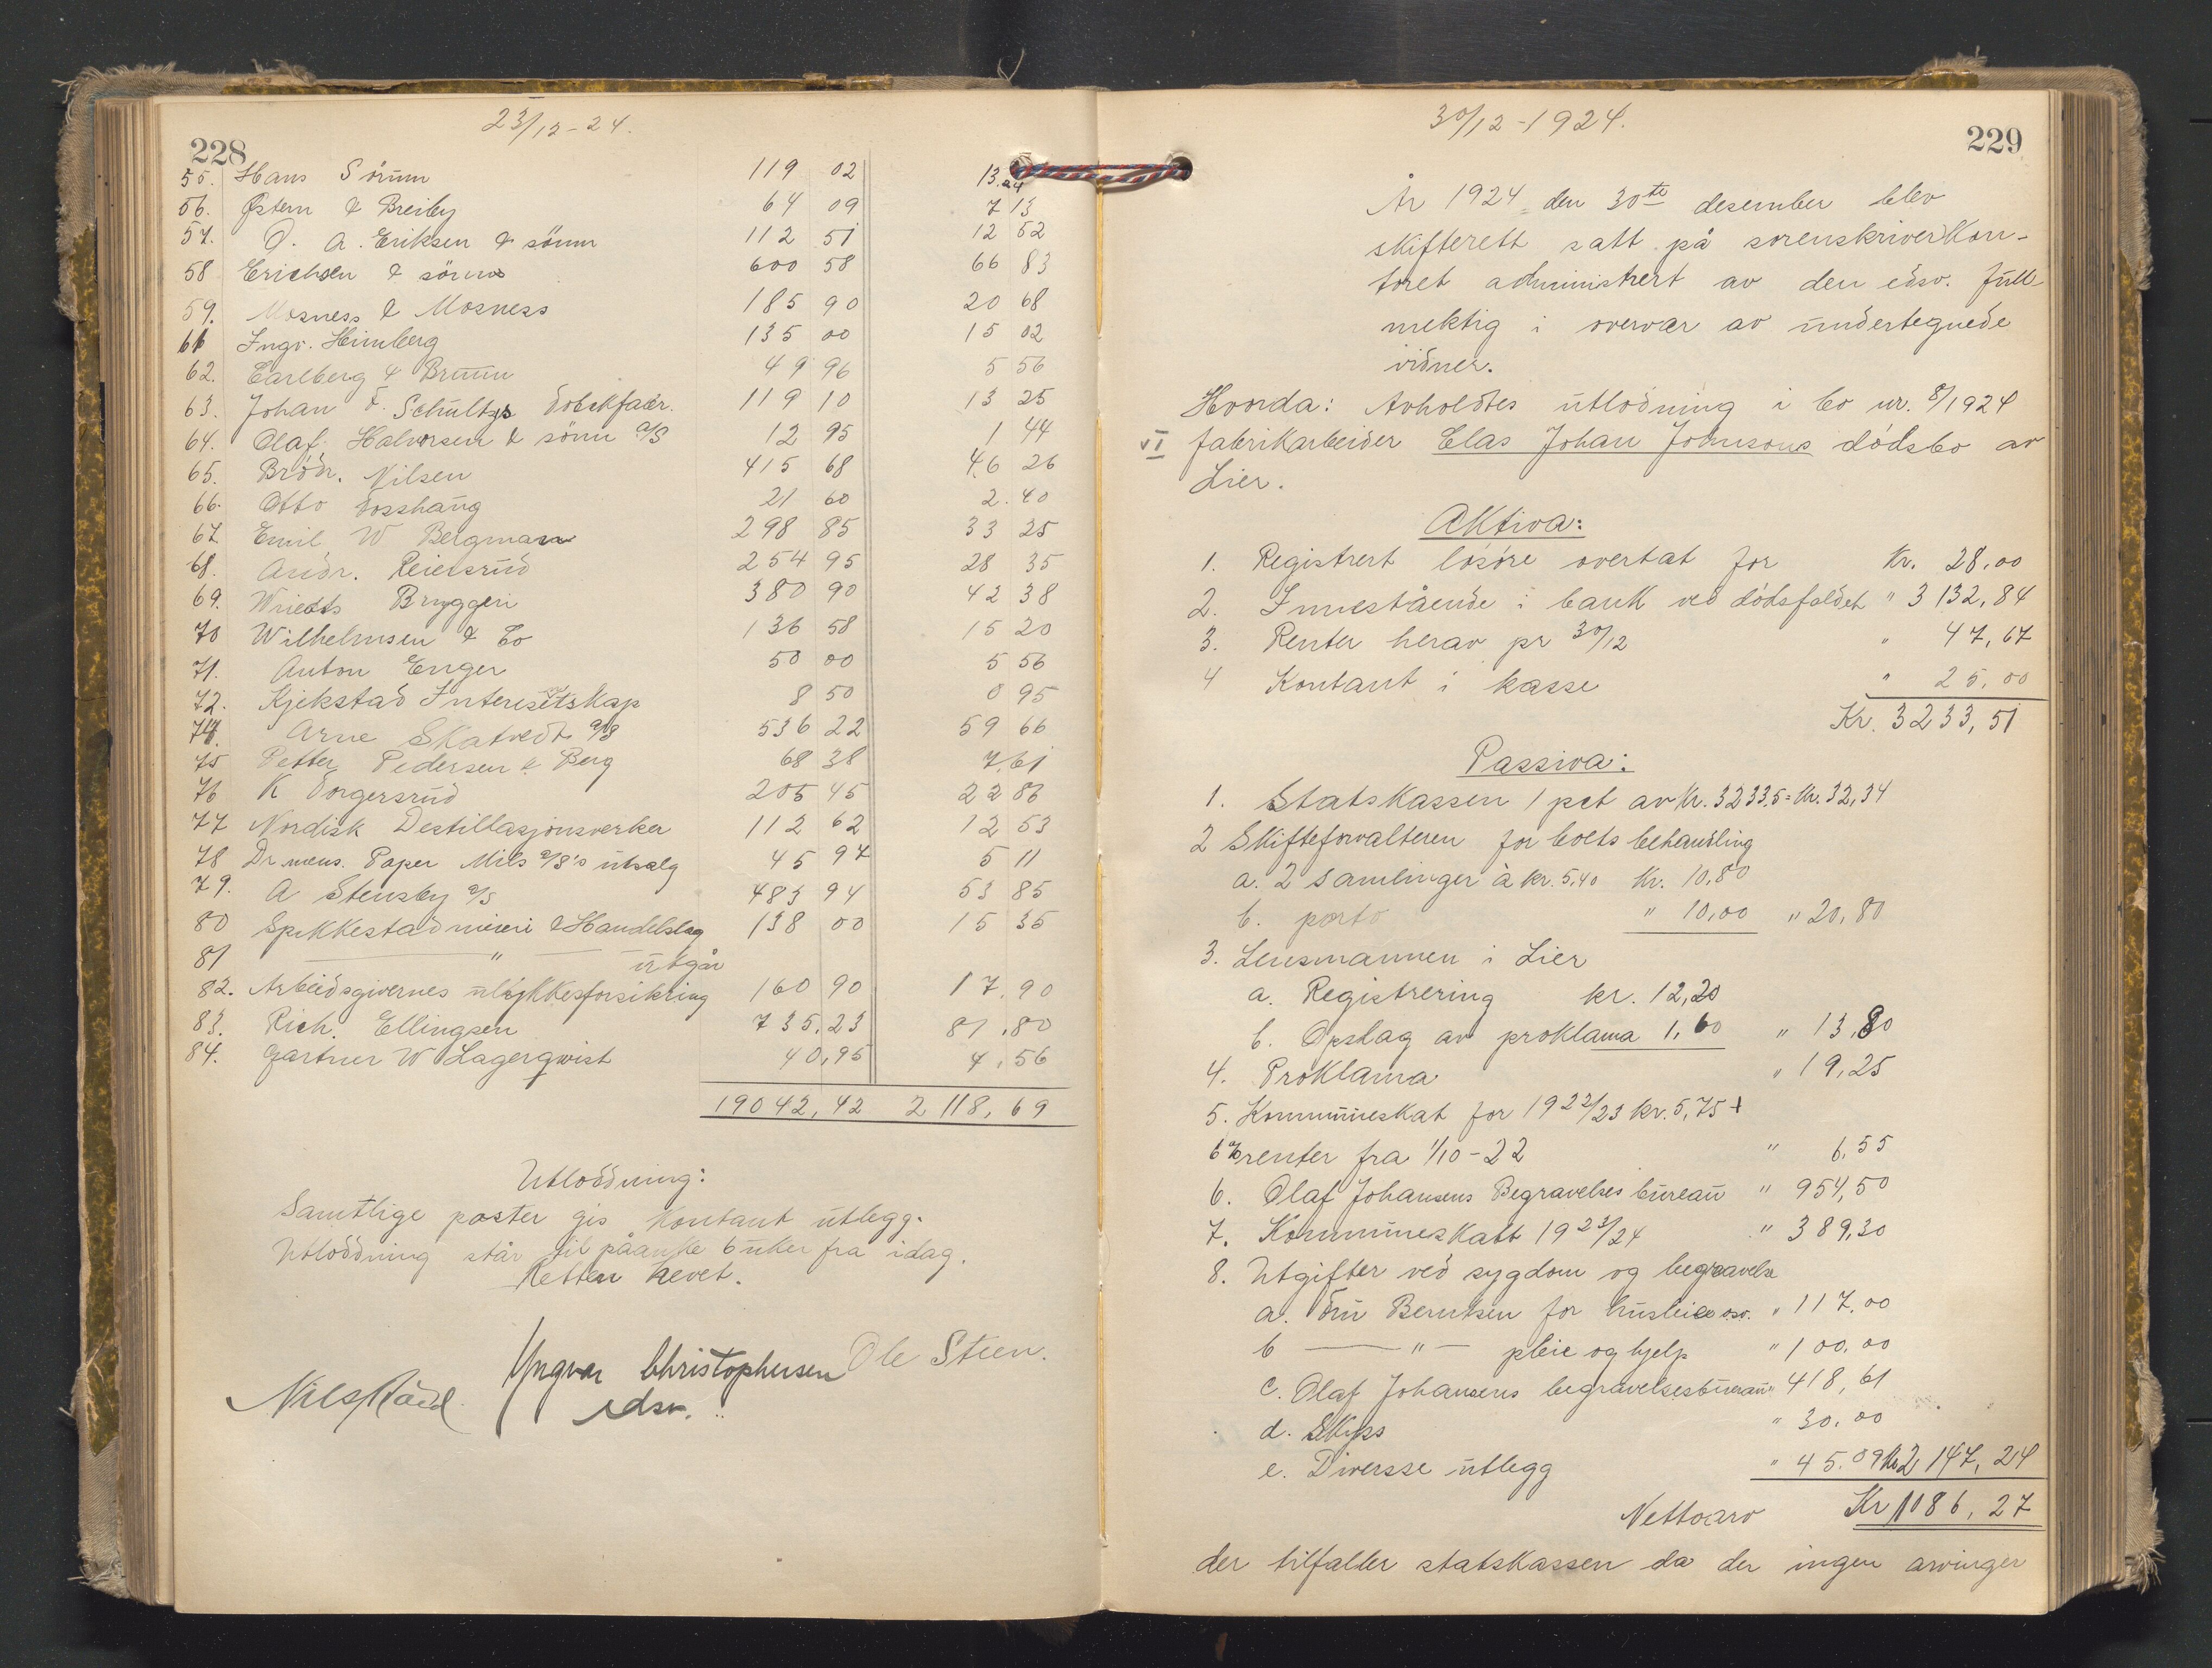 23/12-24.
228
55. Hans Sörum 119 02 13.24
56. Østern & Breiby 64 09 7 13
57. O. A. Eriksen & sönn 112 51 12 52
58 Erichsen & sönn 600 58 66 83
59. Mosness & Mosness 185 90 20 68
61 Ingv. Heimberg 135 00 15 02
62. Carlberg & Bruun 49 96 5 56
63. Johan F. Schultzs Tobakfabr. 119 10 13 25
64. Olaf Halvorsen & sönn A/S 12 95 1 44
65. Brödr. Nilsen 415 68 46 26
66. Otto Fosshaug 21 60 2.40
67. Emil W Bergmann 298 85 33 25
68. Andr. Reiersrud 254 95 28 35
69. Wriedts Bryggeri 380 90 42 38
70 Wilhelmsen & Co 136 58 15 20
71. Anton Enger 50 00 5 56
72. Kjekstad Interesetskap 8 50 0 95
74. Arne Skatvedt A/S 536 22 59 66
75 Petter Pedersen & Berg 68 38 7.61
76 K Torgersrud 205 45 22 86
77 Nordisk Destillasjonsverker 112 62 12 53
78 Drmens. Paper Mils A/S's utsalg 45 97 5 11
79. A Stensby A/S 483 94 53 85
80 Spikkestad meieri & Handelslag 138 00 15 35
81 — " — utgår
82. Arbeidsgivernes ulykkesforsikring 160 90 17.90
83. Rich. Ellingsen 735.23 81.80
84. Gartner W Lagerqwist 40,95 4.56
19042,42 2118,69
Utlodning:
Samtlige poster gis kontant utlegg.
Utlodning står til påanke 6 uker fra idag.
Retten hevet.
Yngvar Christophersen Ole Steen.
Nils
edsv.
30/12-1924.
229
År 1924 den 30te desember blev
skifterett satt på sorenskriverkon-
toret administrert av den edsv. full-
mektig i overvær av undertegnede
vidner.
Hvorda: Avholdtes utlodning i bo nr. 8/1924
VI fabrikarbeider Clas Johan Johnsons dödsbo av
Lier.
Aktiva:
1. Registrert lösöre overtat for Kr. 28.00
2. Innestående i bank ved dödsfaldet " 3132,84
3. Renter herav pr 30/12 " 47,67
4 Kontant i kasse " 25,00
Kr. 3233,51
Passiva:
1. Statskassen 1 pct av Kr. 3233.5 = Kr. 32,34
2 Skifteforvalteren for boets behandling
a. 2 samlinger à kr. 5,40 Kr. 10,80
b. porto " 10,00 " 20,80
3. Lensmannen i Lier
a. Registrering kr. 12,20
b. Opslag av proklama 1,60 " 13,80
4. Proklama " 19,25
5. Kommuneskat for 1922/23 kr. 5,75 +
6% renter fra 1/10-22 " 6,55
6. Olaf Johansens Begravelsesbureau " 954,50
7. Kommuneskatt 1923/24 " 389,30
8. Utgifter ved sygdom og begravelse
a. Fru Berntsen for husleie osv. " 117,00
b — " — pleie og hjelp " 100,00
c. Olaf Johansens begravelsesbureau " 418,61
d. Skyss " 30.00
e. Diversse utlegg " 45.09 Kr 2147,24
Nettoarv Kr 1086,27
der tilfaller statskassen da der ingen arvinger